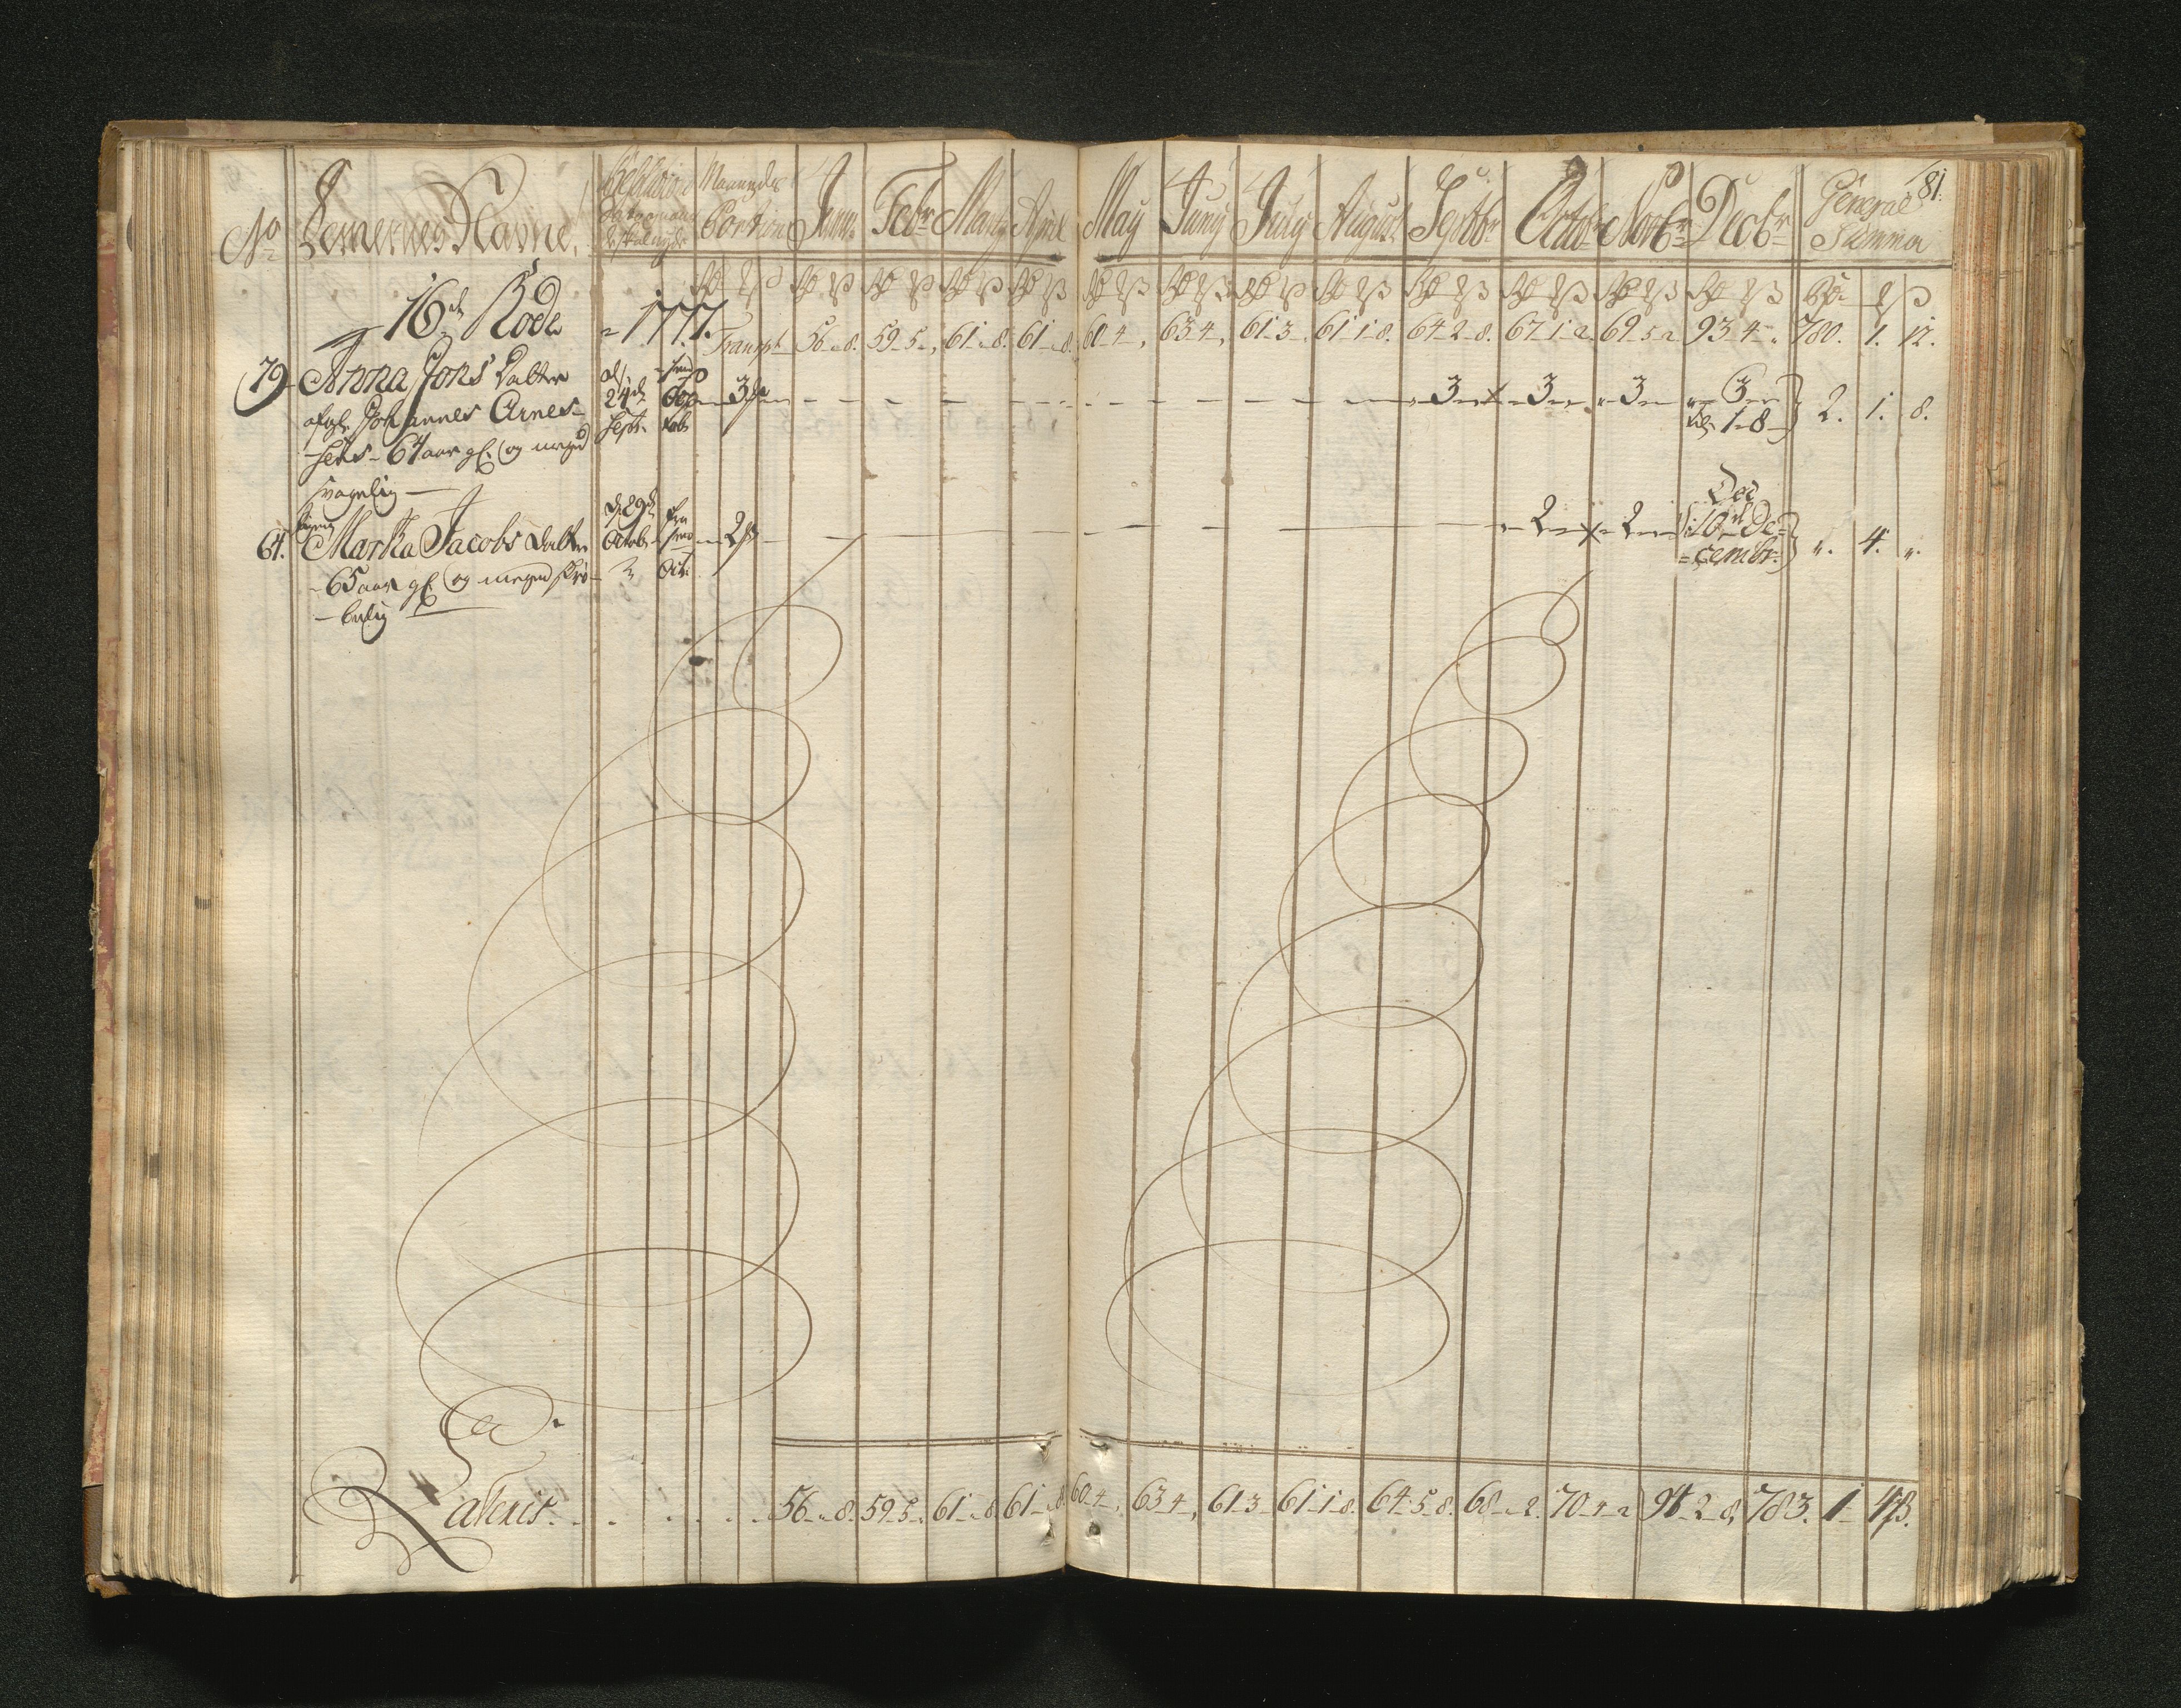 81.
No Lemernes Navne, Maaneds Portion Janu: Febr Marty April May Juny July August Septbr Octobr Novbr Decbr General Summa
16de Rode 1777. Transpt 56 „ 8. 59 5 „ 61 „ 8. 61 „ 8. 60 4 „ 63 4 „ 61 3 „ 61 1 8. 64 2 8. 67 1 2. 69 5 2 93 4 „ 780. 1. 12.
79 Anna Jons Datter 3 „ 3 „ 3 „ 3 „ 3
afgl. Johannes Arnes- 24de Sept. 1 8 2. 1. 8.
sens 64 aar gl. og meget
svagelig
64. Marta Jacobs Datter d. 29de Octobr 2 2 2 Ded 10de De-cembr. „. 4. „.
65 aar gl. og meget skrö-
belig
Lateris 56 „ 8. 59 5 „ 61 „ 8. 61 „ 8. 60 4 „ 63 4 „ 61 3 61 1 8. 64 5 8. 68 „ 2. 70 4 2 94 2 8. 783. 1 4ß.